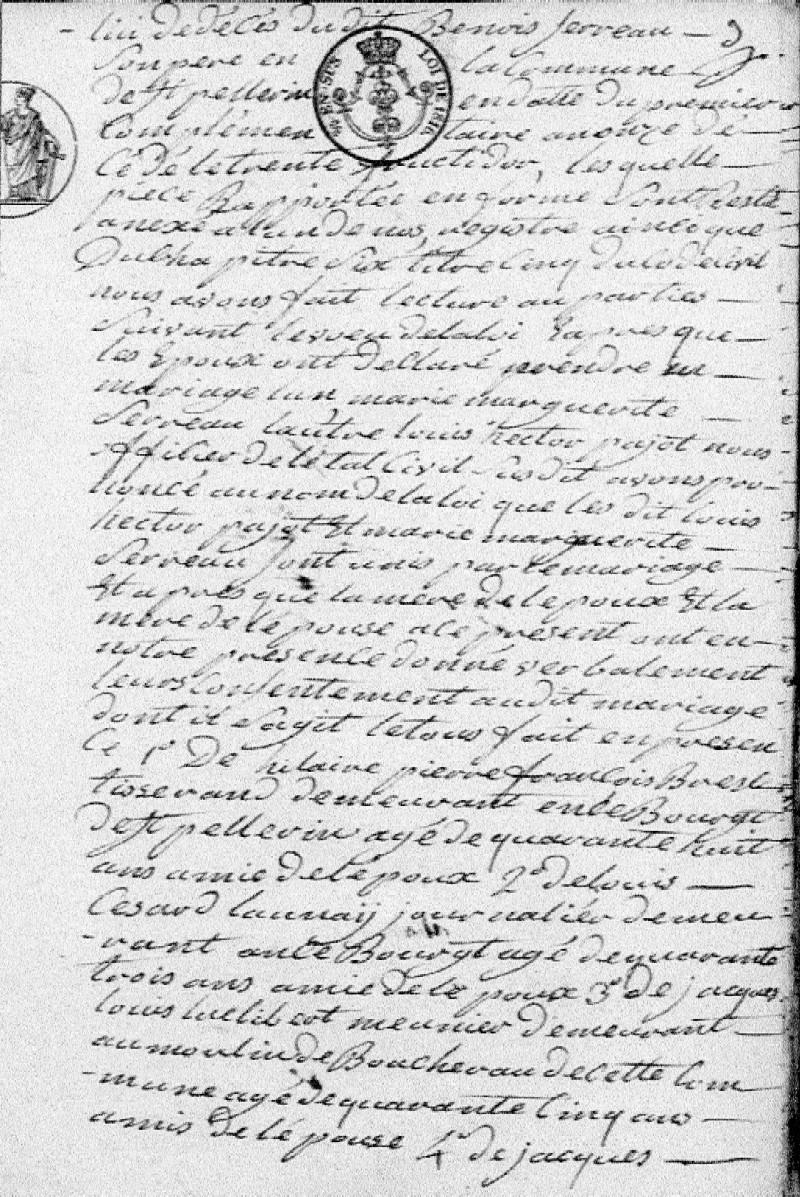 lui de décés du dit Benois Serreau
Son pere en la Commune
de St pellerin en datte du premier
Complémentaire an onze dé
cé dé le trente fructidor, les quelle
piece Rapportée en forme Sont Resté
anexé a l'un de nos registre ainci que
Du Chapitre Six titre Cinq du Code Civil
nous avons fait lecture au parties
Suivant le veu de la loi Et apres que
les Epoux ont déclaré prendre en
mariage l'un marie marguerite
Serreau l'autre louis hector pajot nous
officier de l'état Civil Sus dit avons pro-
noncé au nom de la loi que les dit louis
hector pajot Et marie marguerite
Serreau Sont unis par le mariage
Et apres que la mere de lepoux Et la
mere de lé pouse a ce présent ont en
notre présence donné verbalement
leurs Consentement audit mariage
dont il Sagit le tous fait en presen
Ce 1r De hilaire pierre françois
tisserand demeurant en ce Bourgt
de St pellerin agé de quarante huit
ans amie de lé poux 2e de louis
Cesard launay journalier demeu
-rant an ce Bourgt agé de quarante
trois ans amie de le poux 3e de jacques
louis meunier demeurant
au moulin de Boucheran de cette Com
-mune agé de quarante Cinq ans
amis de lé pouse 4e de jacques
LOI DE 1816